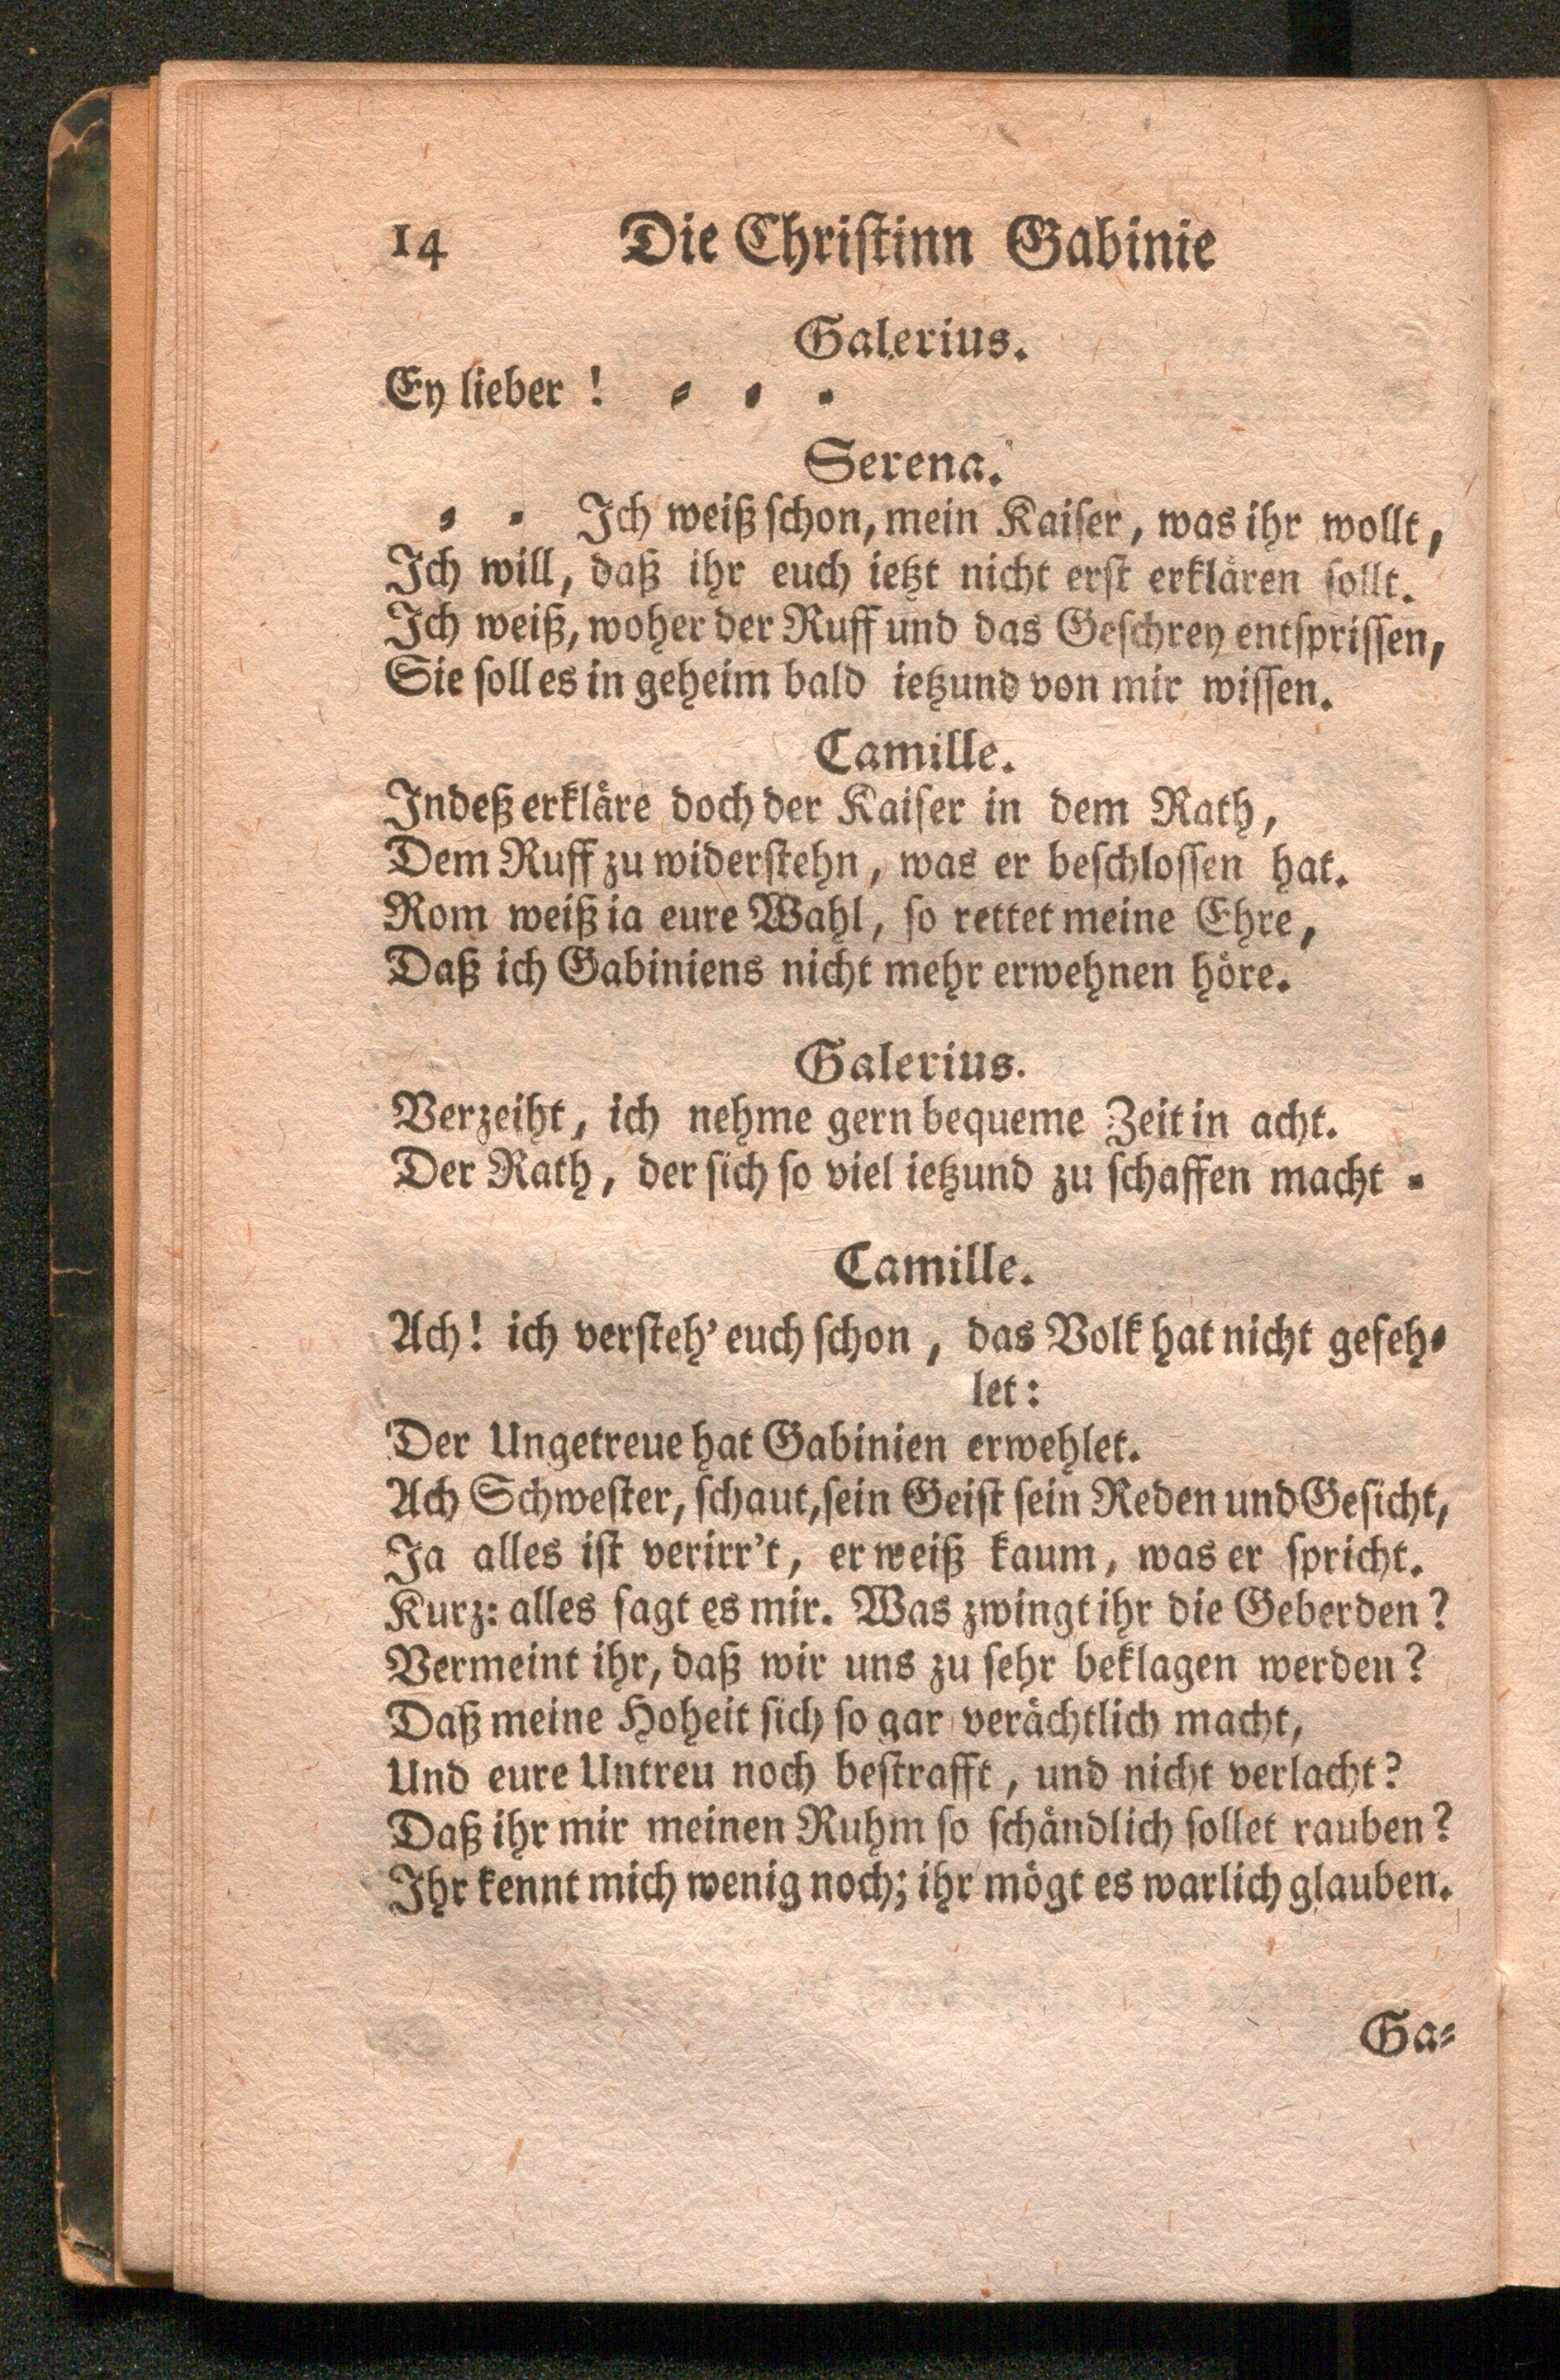 14 Die Christinn Gabinie
Galerius.
Ey lieber ! = = =
Serena.
= = Ich weiß schon, mein Kaiser, was ihr wollt,
Ich will, daß ihr euch ietzt nicht erst erklären sollt.
Ich weiß, woher der Ruff und das Geschrey entsprissen,
Sie soll es in geheim bald ietzund von mir wissen.
Camille.
Indeß erkläre doch der Kaiser in dem Rath,
Dem Ruff zu widerstehn, was er beschlossen hat.
Rom weiß ia eure Wahl, so rettet meine Ehre,
Daß ich Gabiniens nicht mehr erwehnen höre.
Galerius.
Verzeiht, ich nehme gern bequeme Zeit in acht.
Der Rath, der sich so viel ietzund zu schaffen macht =
Camille.
Ach! ich versteh' euch schon, das Volk hat nicht gefeh=
let:
Der Ungetreue hat Gabinien erwehlet.
Ach Schwester, schaut, sein Geist sein Reden und Gesicht,
Ja alles ist verirr't, er weiß kaum, was er spricht.
Kurz: alles sagt es mir. Was zwingt ihr die Geberden?
Vermeint ihr, daß wir uns zu sehr beklagen werden?
Daß meine Hoheit sich so gar verächtlich macht,
Und eure Untreu noch bestrafft, und nicht verlacht?
Daß ihr mir meinen Ruhm so schändlich sollet rauben?
Ihr kennt mich wenig noch; ihr mögt es warlich glauben.
Ga=